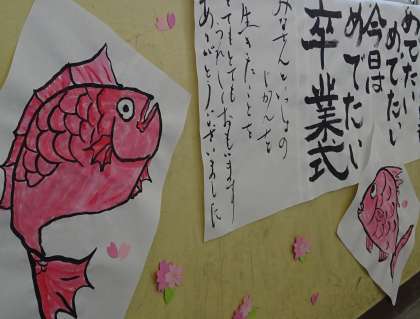 めでたい
めでたい
今日は
めでたい
卒業式
みなさんといっしょの
じかんを
生きたことを
とてもとても
うれしくおもいます
ありがとうございました